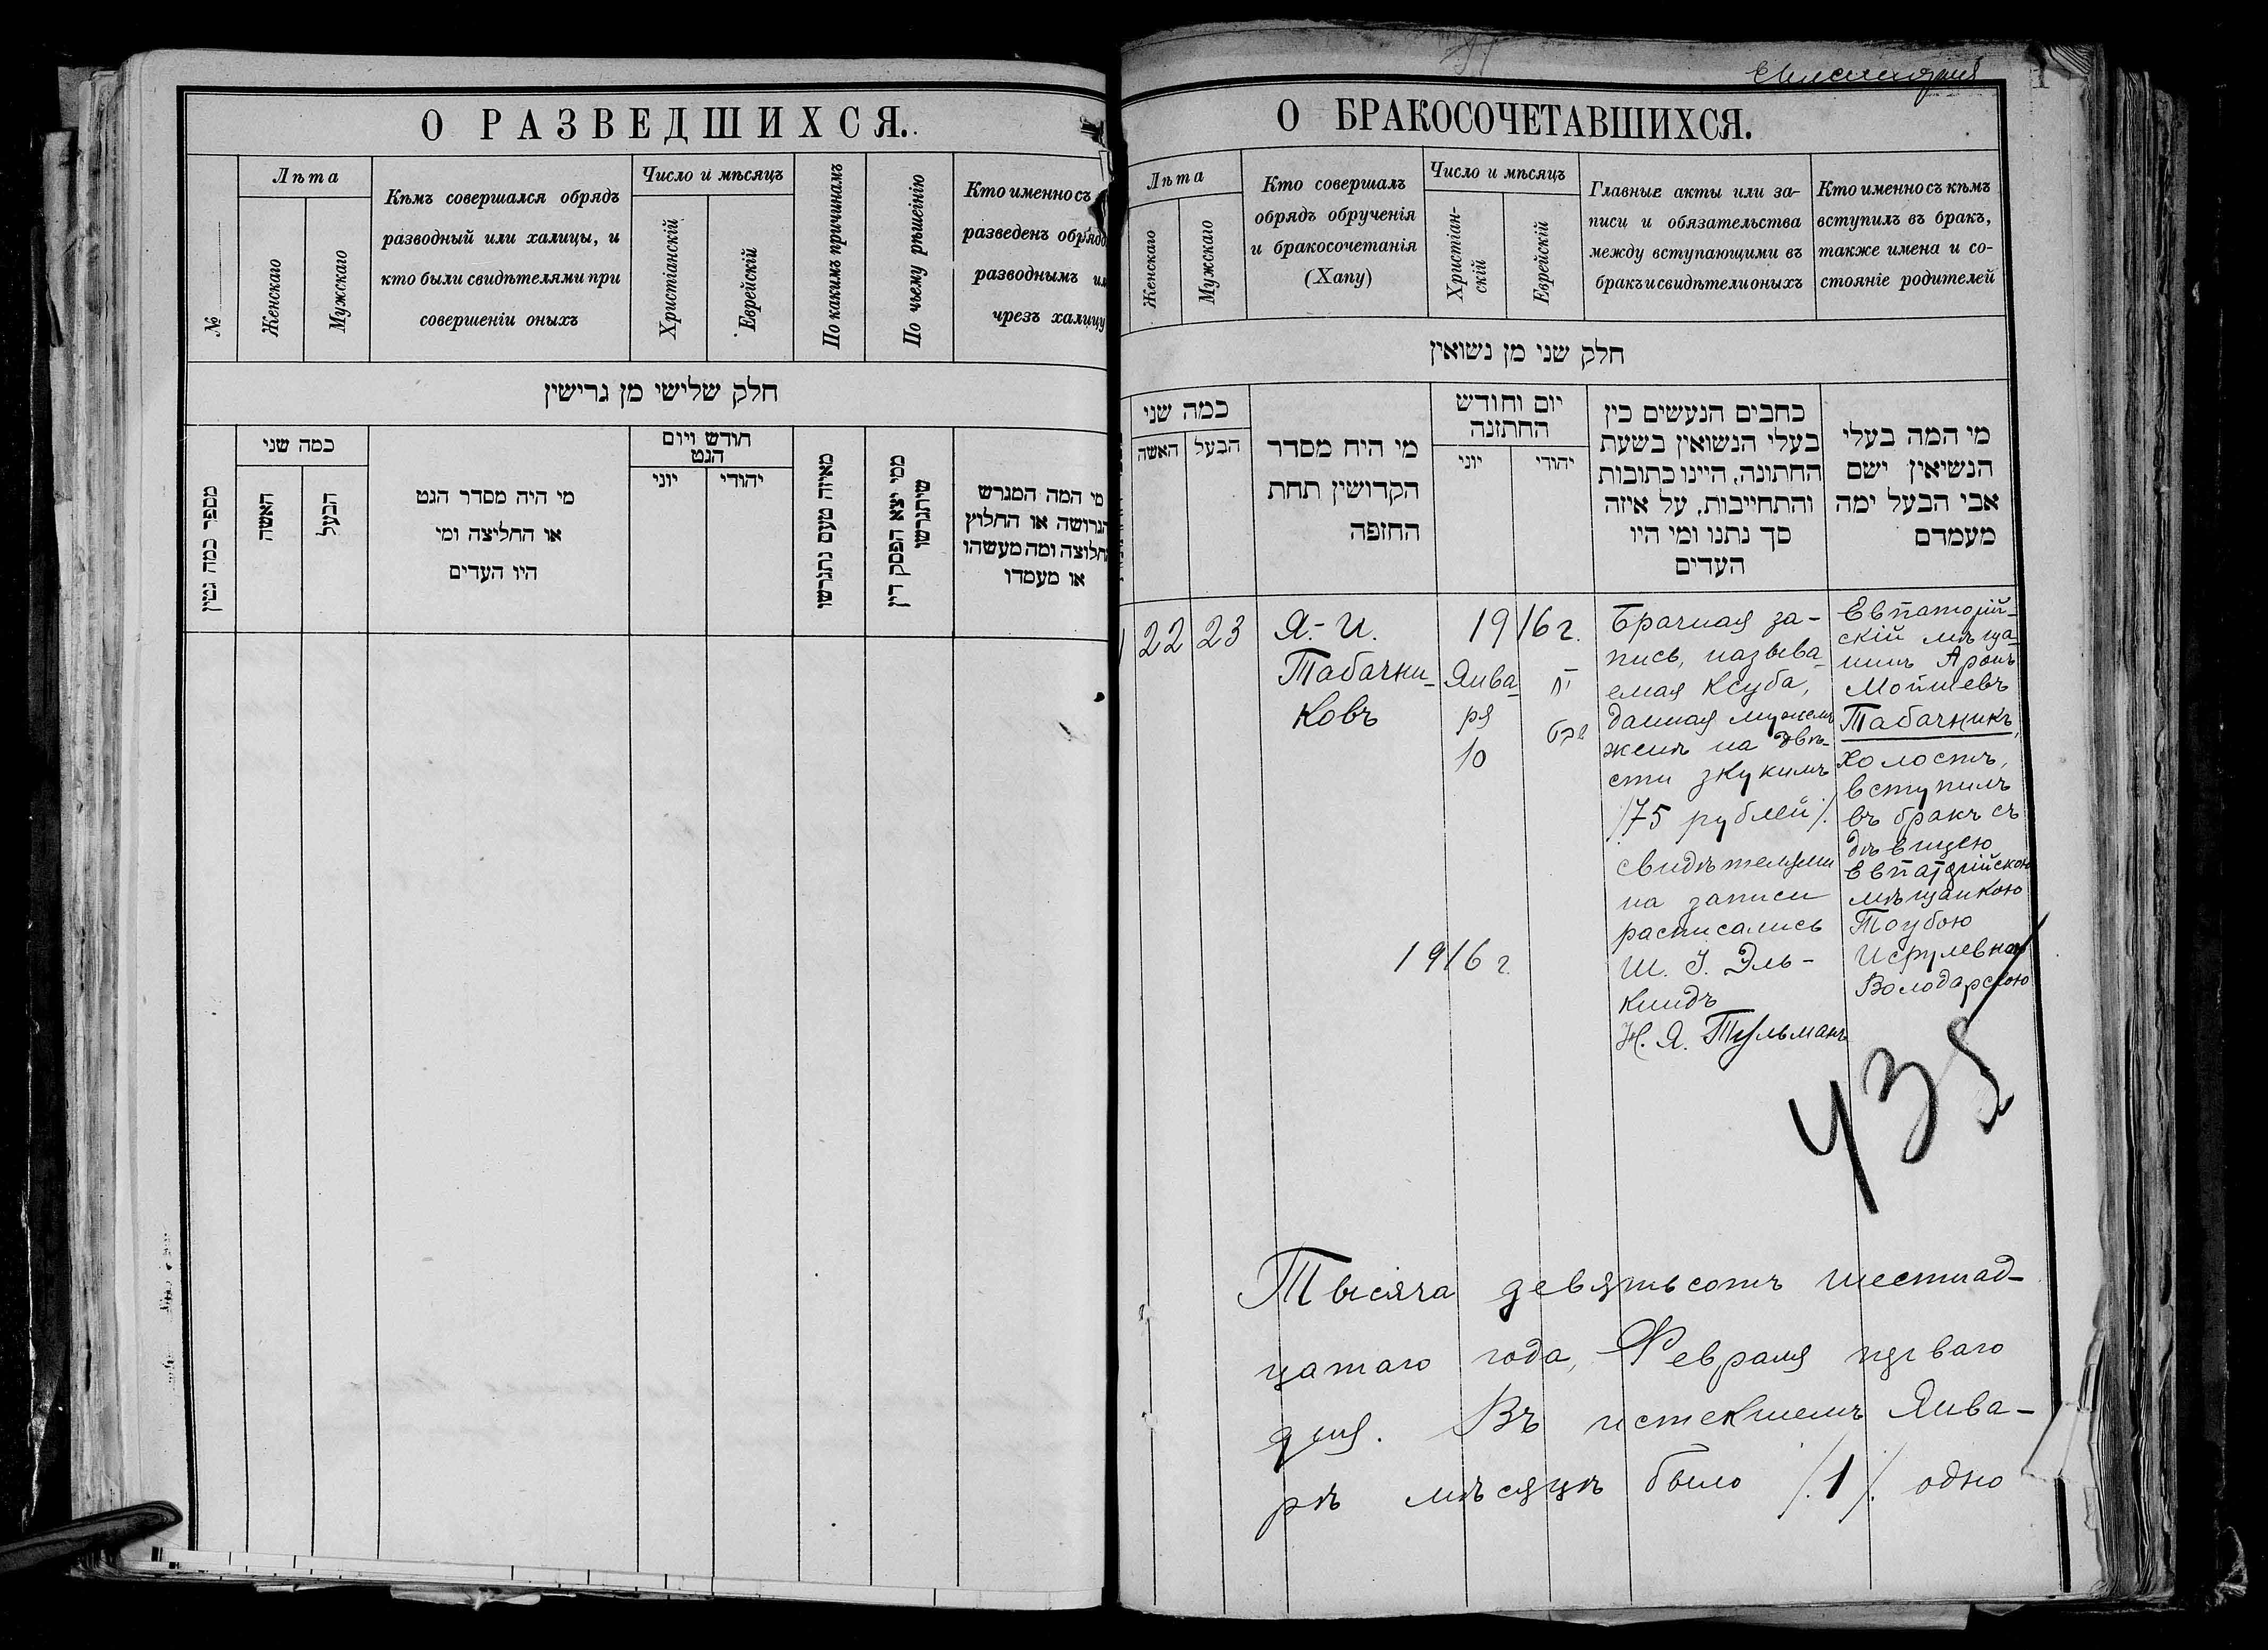 О РАЗВЕДШИХСЯ.
№
Лѣта
Женскаго
Мужскаго
Кѣмъ совершался обрядъ
разводный или халицы, и
кто были свидѣтелями при
совершеніи оныхъ
Число и мѣсяцъ
Христіанскій
Еврейскій
По какимъ причинамъ
По чьему рѣшеінію
Кто именно съ
разведенъ обрядо
разводнымъ ил
чрезъ халицу
חלק שלישי מן גרישין
מספר כמה גטין
כמה שני
האשה
הבעל
מי היה מסדר הגט
או החליצה ומי
היו העדים
חודש ויום
הגט
יוני
יהודי
מאיזה טעם נתגרשו
ממי יצא הפסק דין
שיתגרשו
מי המה המגרש
הגרושה או החלוץ
חלוצה ומה מעשהו
או מעמדו
О БРАКОСОЧЕТАВШИХСЯ.
Лѣта
Женскаго
Мужскаго
Кто совершалъ
обрядъ обрученія
и бракосочетанія
(Хапу)
Число и мѣсяцъ
Христіан-
скій
Еврейскій
Главные акты или за-
писи и обязательства
между вступающими въ
бракъ и свидѣтели оныхъ
Кто именно съ кѣмъ
вступилъ въ бракъ,
также имена и со-
стояніе родителей
חלק שני מן נשואין
כמה שני
האשה
הבעל
מי היח מסדר
הקדושין תחת
החופה
יום וחודש
החתונה
יוני
יהודי
כתבים הנעשים בין
בעלי הנשואין בשעת
החתונה, היינו כתובות
והתחייבות, על איזה
סך נתנו ומי היו
העדים
מי המה בעלי
הנשיאין ישם
אבי הבעל ימה
מעמדם
1
22
23
Я.-И.
Табачни-
ковъ
1916 г.
Янва-
ря
10
Брачная за-
пись, называ-
емая Ксуба,
данная мужемъ
женѣ на двѣ-
сти зкукимъ
/75 рублей/.
свидѣтелями
на записи
расписались
Ш. І. Эль-
киндъ
Н. Я. Тульманъ
Евпаторій-
скій мѣща-
нинъ Аронъ
Мойшевъ
Табачникъ,
холостъ,
вступилъ
въ бракъ съ
дѣвицею
евпаторійскою
мѣщанкою
Тоубою
Исрулевною
Володарскою
1916 г.
435
Тысяча девятьсотъ шестнад-
цатаго года, Февраля перваго
дня. Въ истекшемъ Янва-
рѣ мѣсяцѣ было /.1/. одно